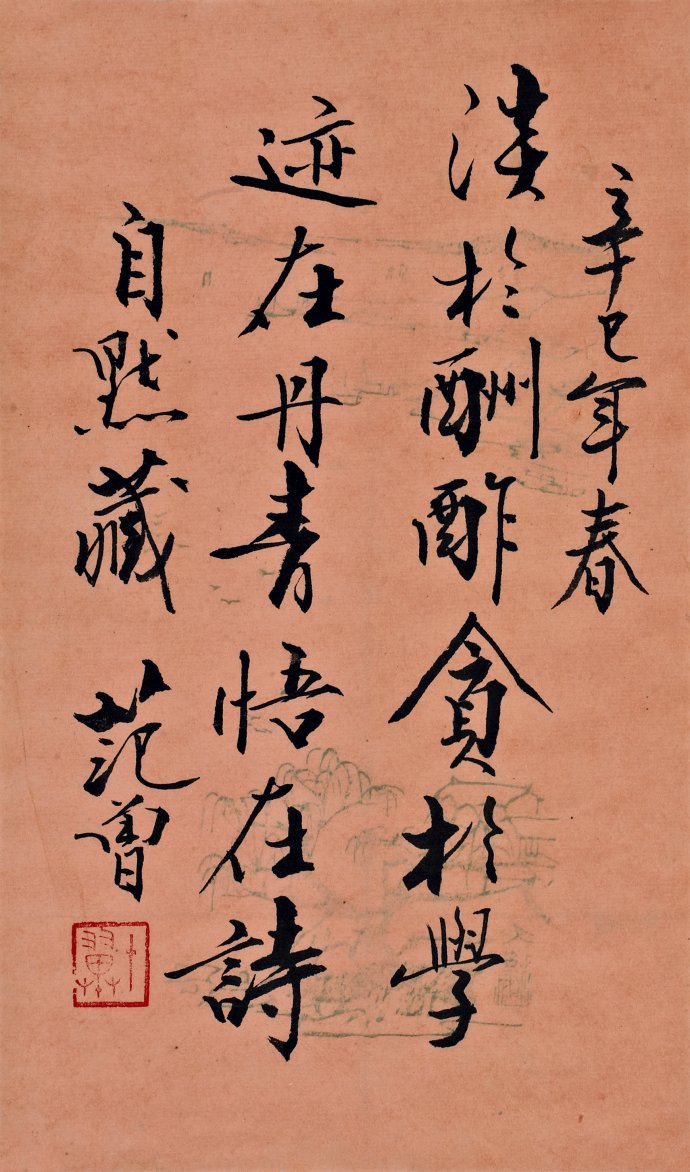 辛巳年春
淡於酬酢貪於學
迹在丹青悟在詩
自默藏 范曾
十翼